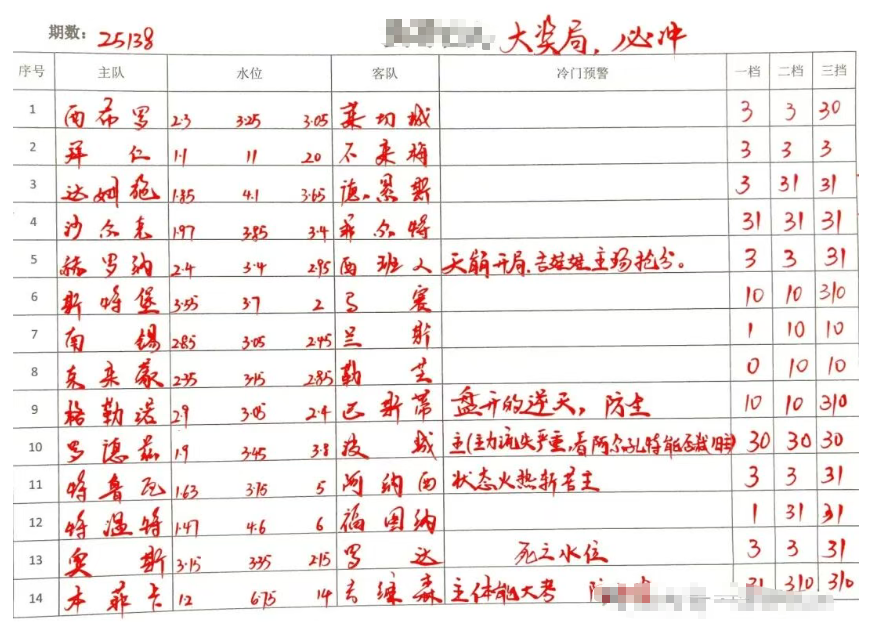 期数: 25138 大奖局, 必冲
序号 主队 水位 客队 冷门预警 一档 二档 三挡
1 西希罗 2.3 3.25 3.05 莱切城 3 3 30
2 拜仁 1.1 11 20 不来梅 3 3 3
3 达姆施 1.85 4.1 3.65 德.恩斯 3 31 31
4 沙尔克 1.97 3.85 3.4 菲尔特 31 31 31
5 赫罗纳 2.4 3.4 2.95 西班人 天崩开局,吉娃娃主场抢分。 3 3 31
6 斯特堡 3.55 3.7 2 马赛 10 10 310
7 南锡 2.85 3.05 2.45 兰斯 1 10 10
8 克莱蒙 2.35 3.15 2.85 勒芒 0 10 10
9 格勒诺 2.9 3.05 2.4 巴斯蒂 盘开的逆天, 防主 10 10 310
10 罗德兹 1.9 3.45 3.8 波城 主(主力流失严重,看阿尔 特能否救主) 30 30 30
11 特鲁瓦 1.63 3.75 5 阿纳西 状态火热新苦主 3 3 31
12 特温特 1.47 4.6 6 福图纳 1 31 31
13 奥斯 3.15 3.35 2.15 罗达 死亡水位 3 3 31
14 本菲卡 1.2 6.75 14 吉维森 主体能大考 31 310 310